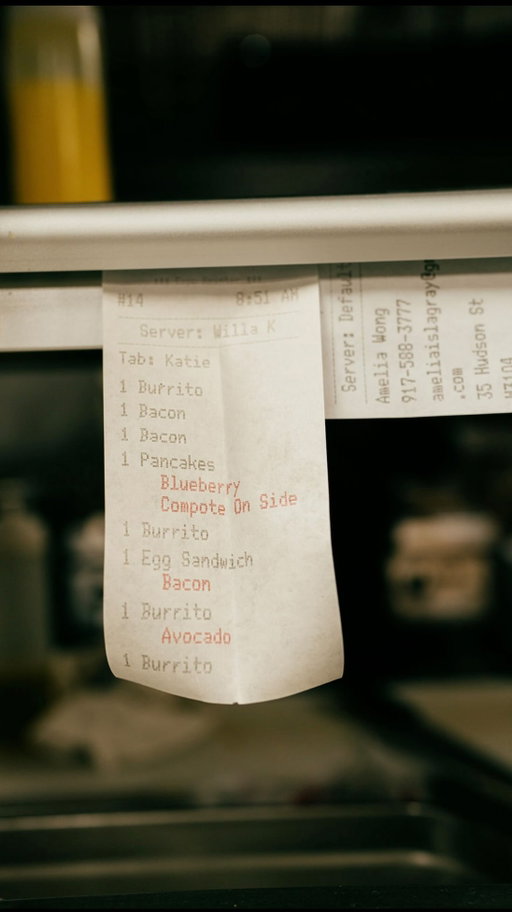 #14 8:51 AM
Server: Willa K
Tab: Katie
1 Burrito
1 Bacon
1 Bacon
1 Pancakes
Blueberry
Compote On Side
1 Burrito
1 Egg Sandwich
Bacon
1 Burrito
Avocado
1 Burrito
Server: Default
Amelia Wong
917-588-3777
ameliaislagray@g
.com
35 Hudson St